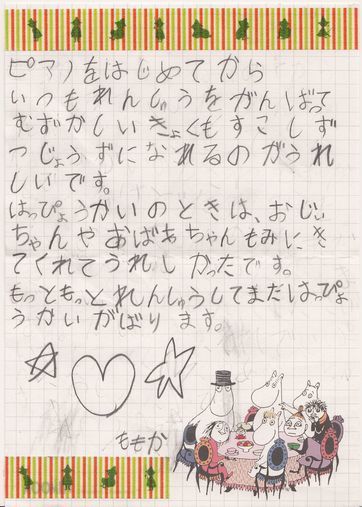 ピアノをはじめてから
いつもれんしゅうをがんばって
むずかしいきょくもすこしず
つじょうずになれるのがうれ
しいです。
はっぴょうかいのときは、おじい
ちゃんやおばあちゃんもみにき
てくれてうれしかったです。
もっともっとれんしゅうしてまたはっぴょ
うかいがばります。
ももか